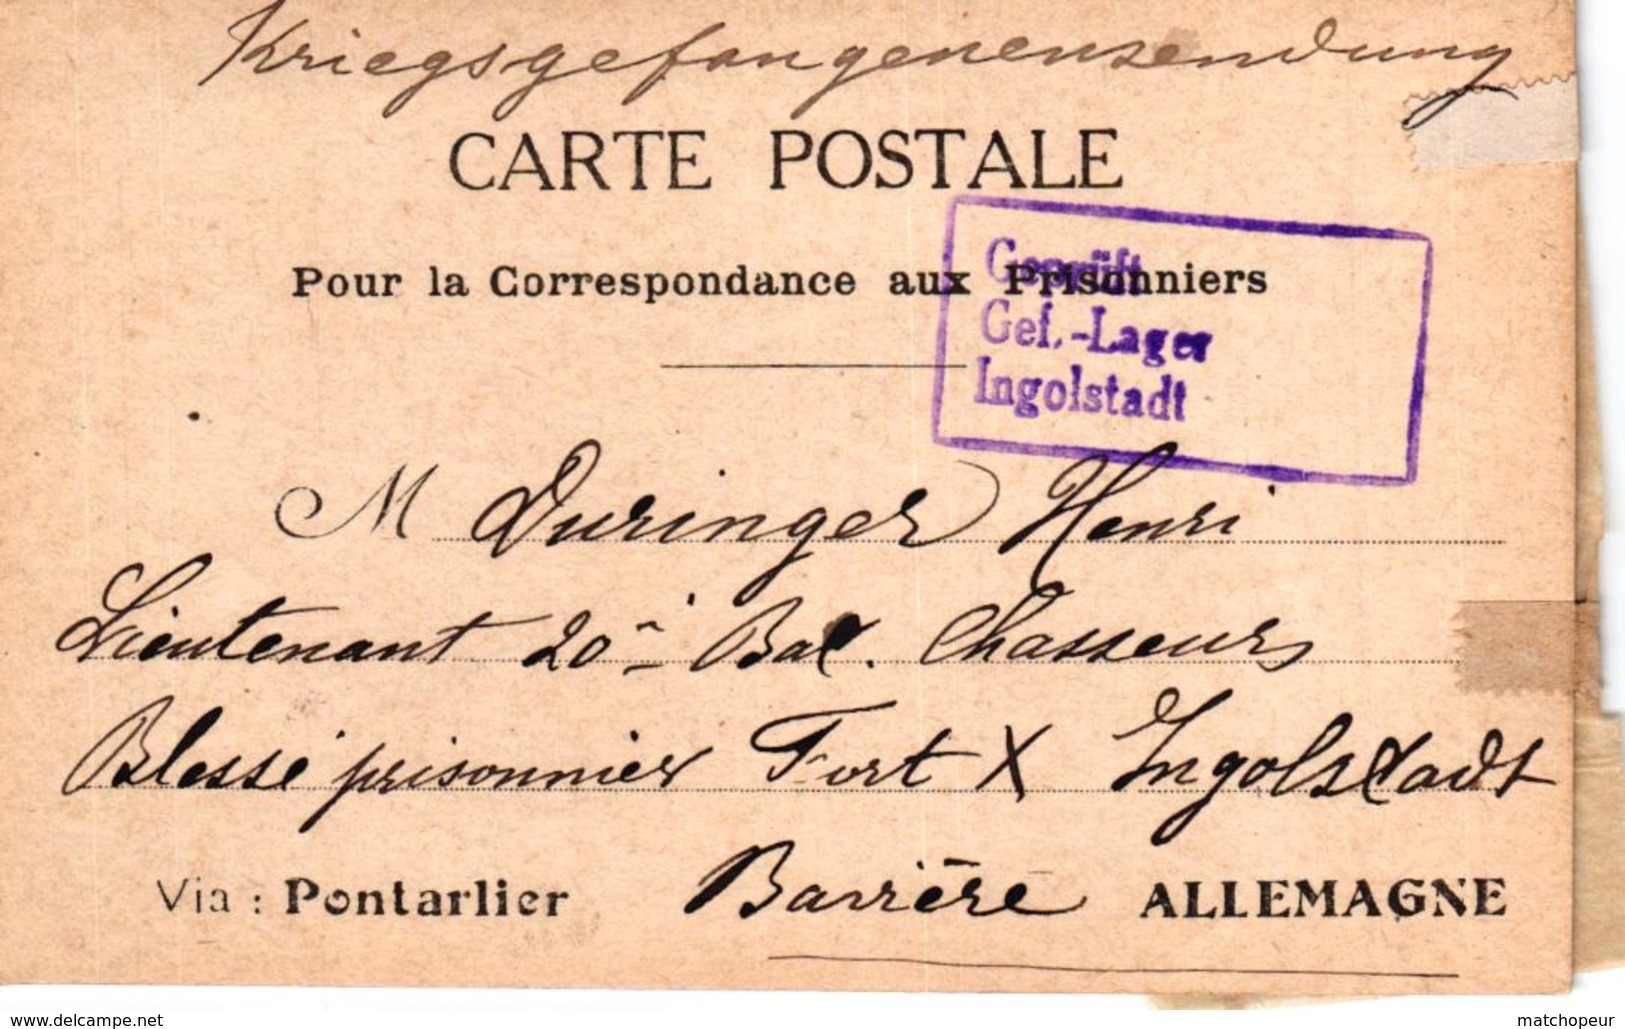 Kriegsgefangenensendung
CARTE POSTALE
Pour la Correspondance aux Prisonniers
Geprüft
Gef.-Lager
Ingolstadt
M Duringer Henri
Lieutenant 20e Bat. Chasseurs
Blessé prisonnier Fort X Ingolstadt
Via : Pontarlier Bavière ALLEMAGNE
www.delcampe.net
matchopeur